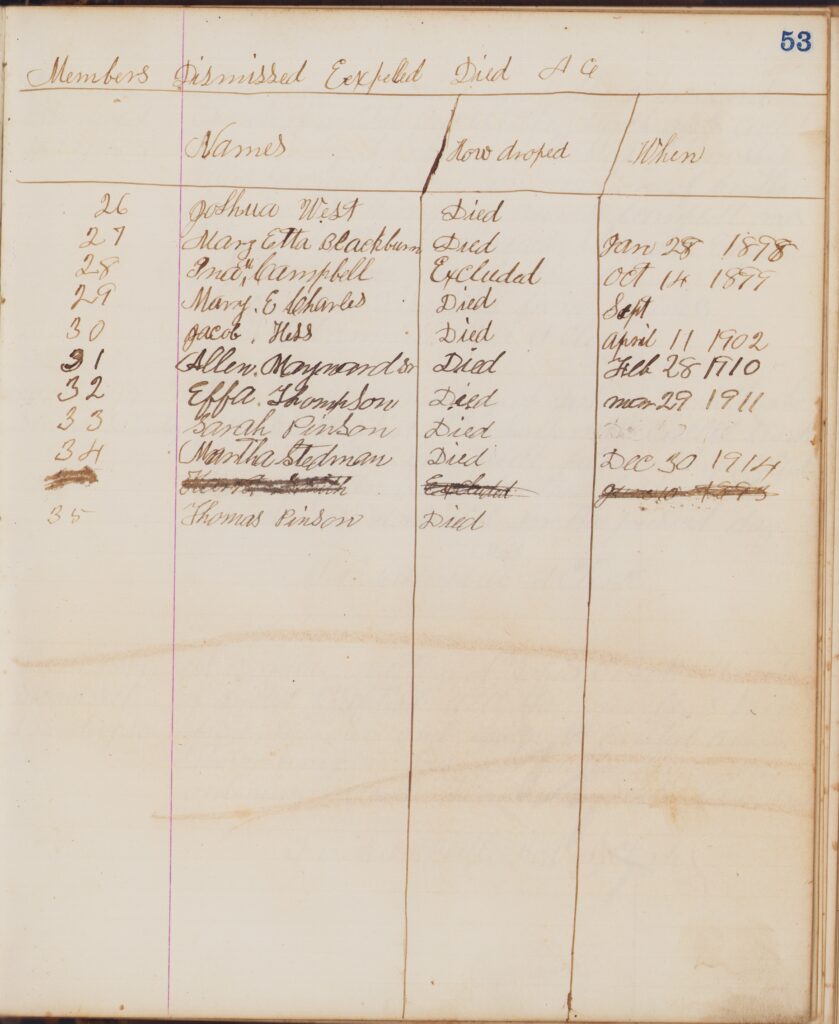 53
Members Dismissed Expelled Died &c
Names How droped When
26 Joshua West Died
27 Mary Etta Blackburn Died Jan 28 1898
28 Campbell Excluded Oct 14 1899
29 Mary. E Charles Died Sept
30 Jacob. Hess Died april 11 1902
31 Allen. Maynard Sr Died Feb 28 1910
32 Effa. Thompson Died mar 29 1911
33 Sarah Pinson Died
34 Martha Stedman Died Dec 30 1914
Excluded
35 Thomas Pinson Died